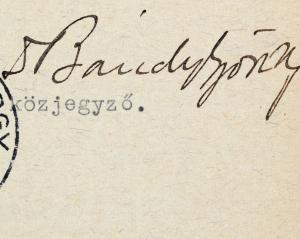 Dr Bándy György
közjegyző.